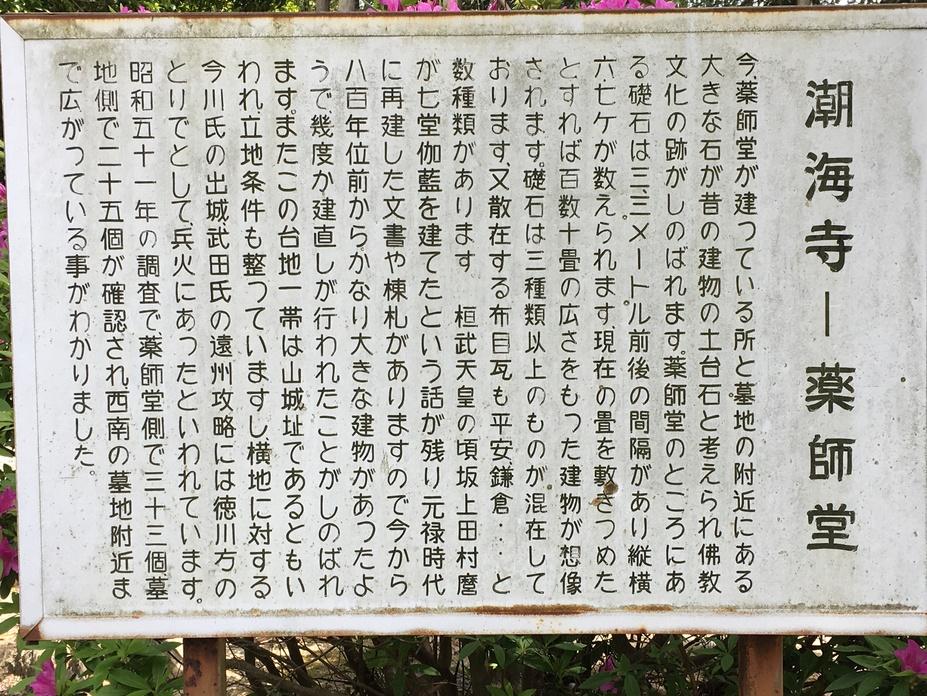 潮海寺ー薬師堂
今、薬師堂が建つている所と墓地の附近にある
大きな石が昔の建物の土台石と考えられ佛教
文化の跡がしのばれます。薬師堂のところにあ
る礎石は三、三メートル前後の間隔があり縦横
六七ケが数えられます、現在の畳を敷きつめた
とすれば百数十畳の広さをもつた建物が想像
されます。礎石は三種類以上のものが混在して
おります、又散在する布目瓦も平安、鎌倉・・と
数種類があります　桓武天皇の頃坂上田村麿
が七堂伽藍を建てたという話が残り元禄時代
に再建した文書や棟札がありますので今から
八百年位前からかなり大きな建物があつたよ
うで幾度か建直しが行われたことがしのばれ
ます。またこの台地一帯は山城址であるともい
われ立地条件も整つていますし横地に対する
今川氏の出城、武田氏の遠州攻略には徳川方の
とりでとして、兵火にあつたといわれています。
昭和五十一年の調査で、薬師堂側で三十三個墓
地側で二十五個が確認され、西南の墓地附近ま
で広がつている事がわかりました。